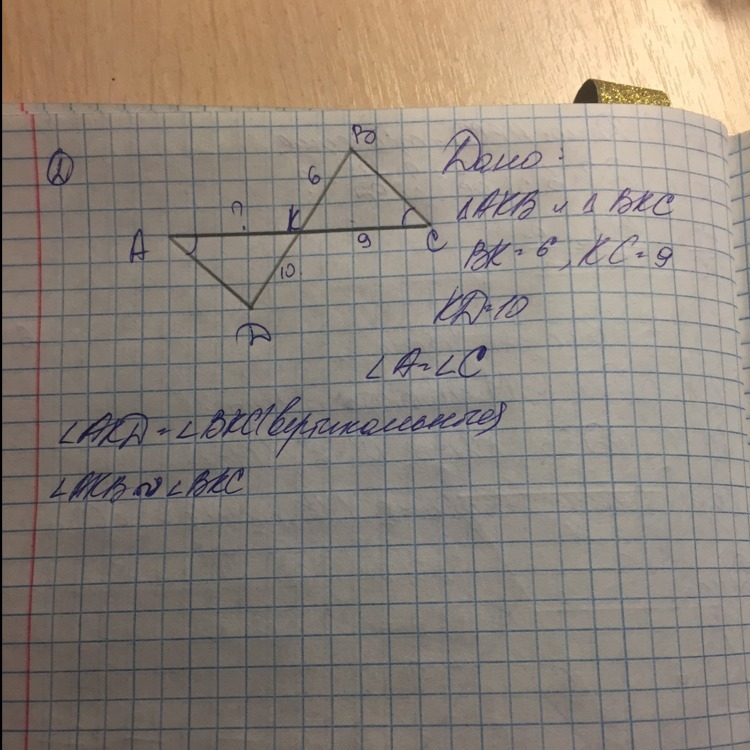 1
B
6
?
K
A
9
C
10
D
Дано:
△AKB и △BKC
BK = 6, KC = 9
KD = 10
∠A = ∠C
∠AKD = ∠BKC (вертикальные)
∠AKB ∾ ∠BKC